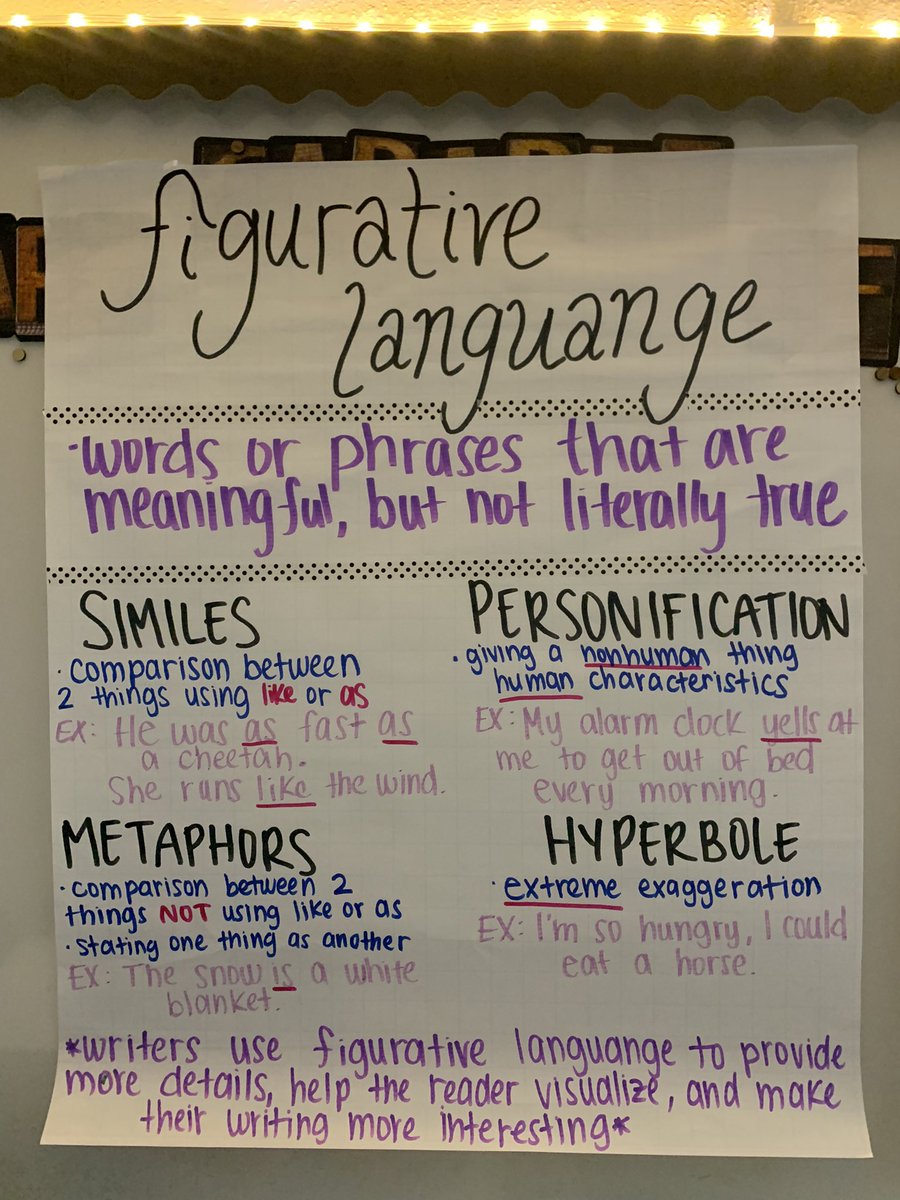 figurative
languange
·words or phrases that are
meaningful, but not literally true
SIMILES
· comparison between
2 things using like or as
EX: He was as fast as
a cheetah.
She runs like the wind.
PERSONIFICATION
· giving a nonhuman thing
human characteristics
EX: My alarm clock yells at
me to get out of bed
every morning.
METAPHORS
· comparison between 2
things NOT using like or as
· stating one thing as another
EX: The snow is a white
blanket.
HYPERBOLE
· extreme exaggeration
EX: I'm so hungry, I could
eat a horse.
*writers use figurative languange to provide
more details, help the reader visualize, and make
their writing more interesting*